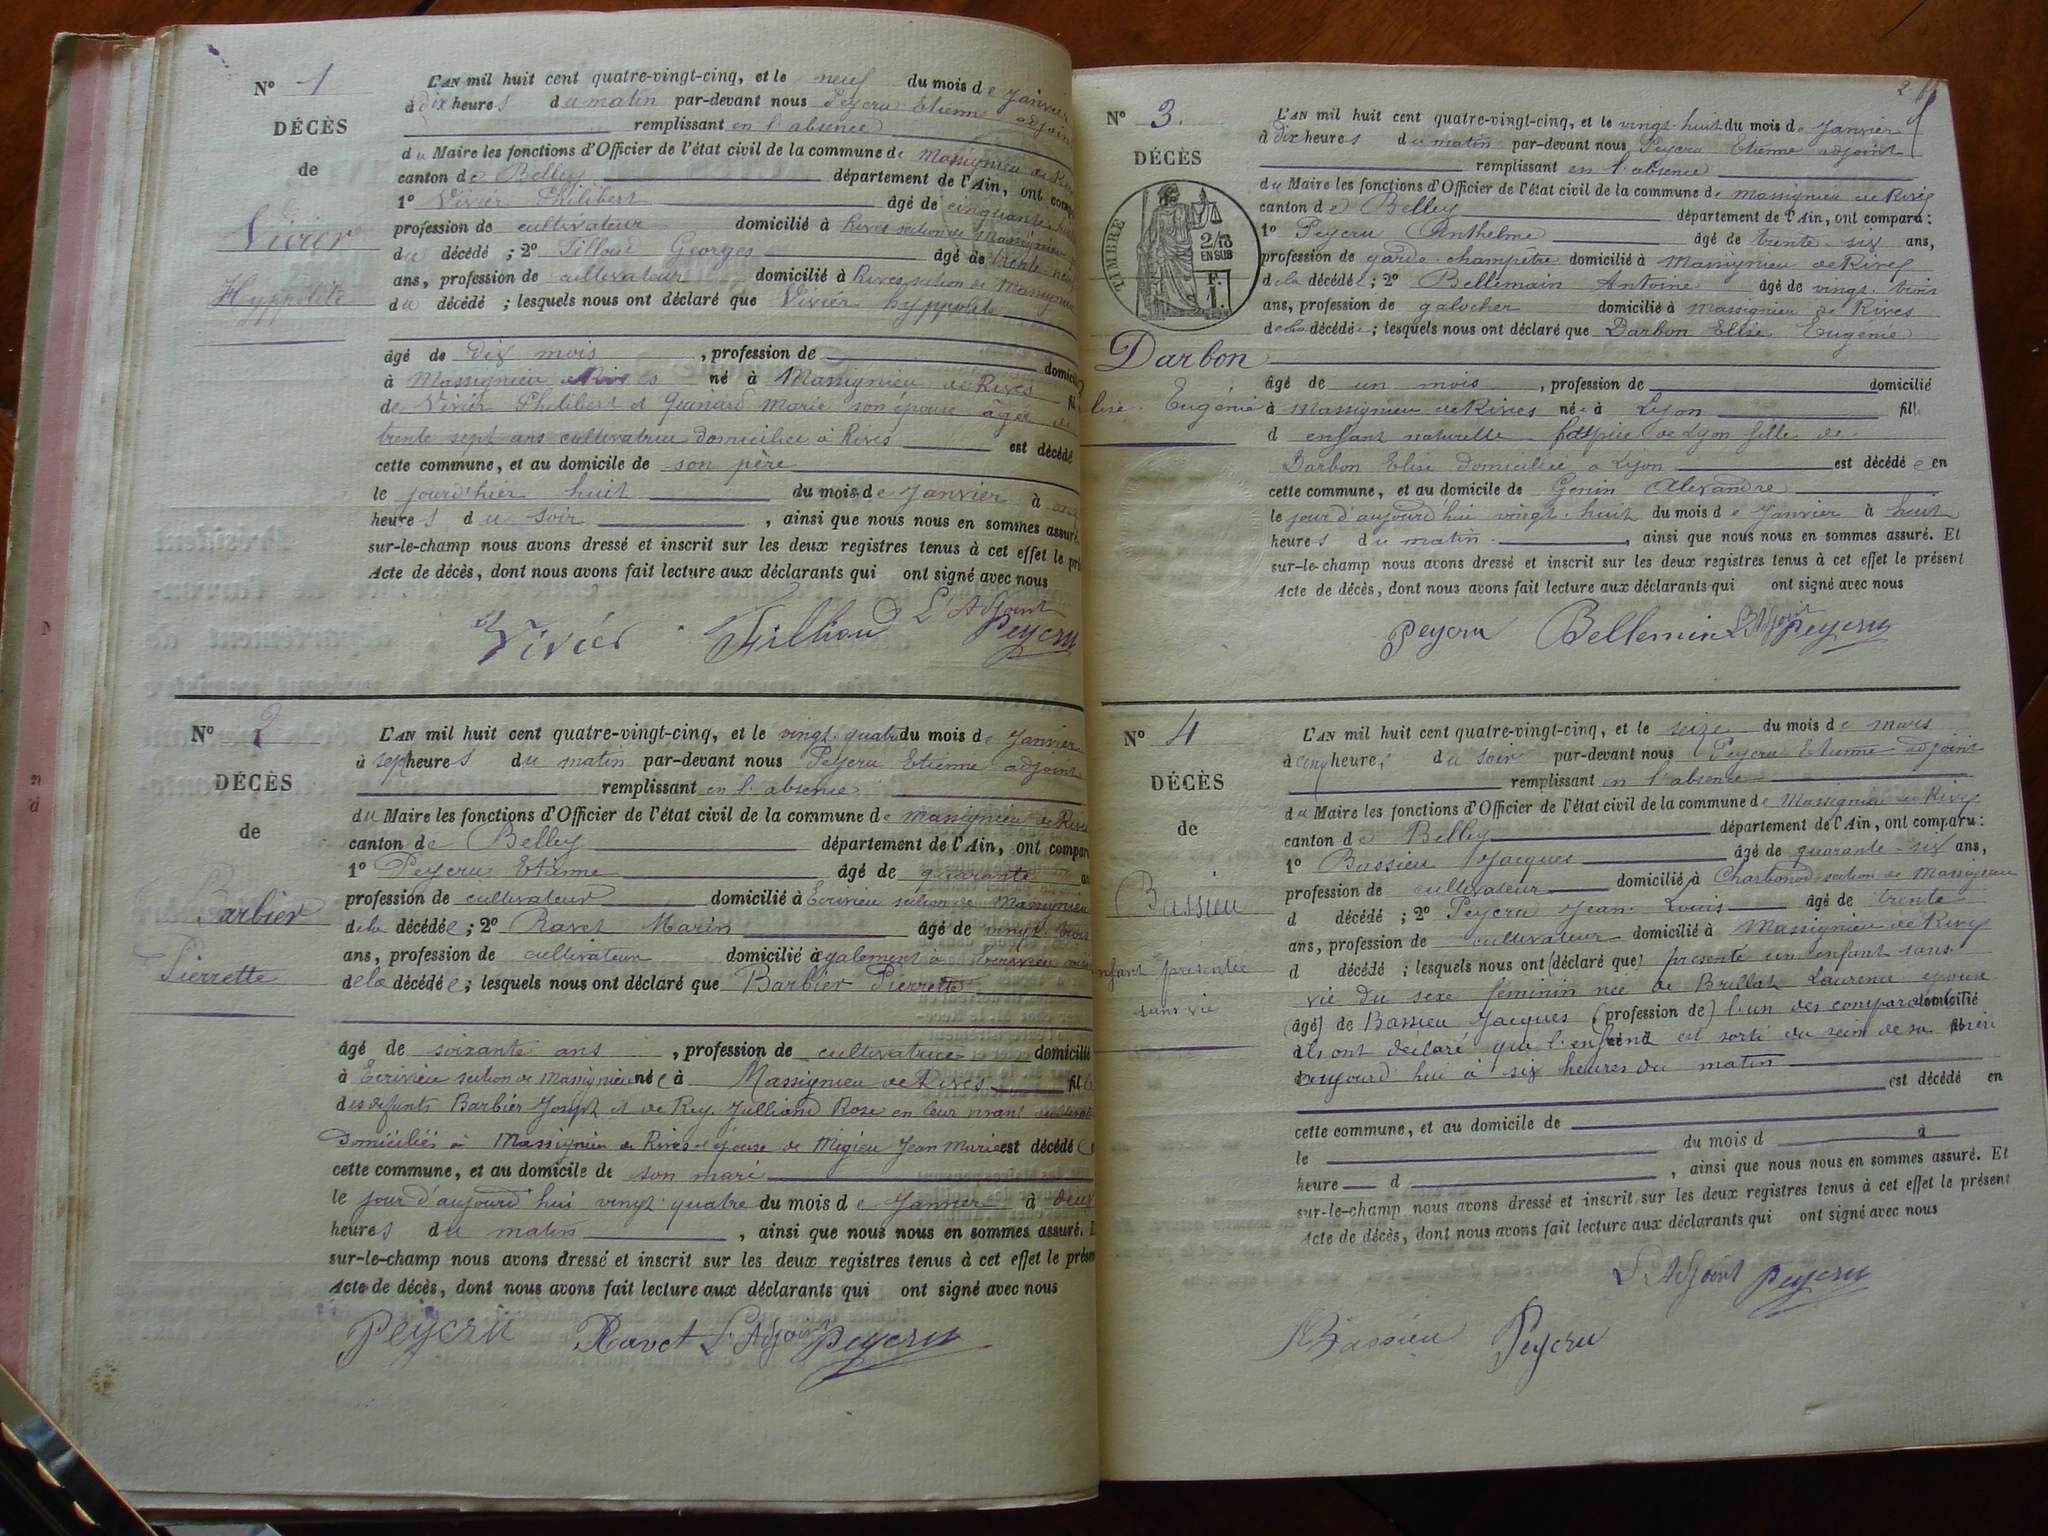 N° 1
DÉCÈS
de
Vivier
Hyppolite
L'AN mil huit cent quatre-vingt-cinq, et le neuf du mois de Janvier
à dix heures du matin par-devant nous Peycru Etienne adjoint
remplissant en l'absence
du Maire les fonctions d'Officier de l'état civil de la commune de Massignieu de Rives
canton de Belley département de l'Ain, ont comp
1° Vivier Philibert âgé de cinquante
profession de cultivateur domicilié à Rives section de Massignieu
du décédé ; 2° Georges âgé de trente neuf
ans, profession de cultivateur domicilié à Rives section de Massignieu
du décédé ; lesquels nous ont déclaré que Vivier hyppolite
âgé de dix mois , profession de domicilié
à Massignieu de Rives né à Massignieu de Rives fil
de Vivier Philibert et Marie son épouse âgée de
trente sept ans cultivatrice domiciliée à Rives est décédé
cette commune, et au domicile de son père
le jour d'hier huit du mois de Janvier à
heures du soir , ainsi que nous nous en sommes assuré.
sur-le-champ nous avons dressé et inscrit sur les deux registres tenus à cet effet le pré
Acte de décès, dont nous avons fait lecture aux déclarants qui ont signé avec nous
Vivier L'Adjoint
Peycru
N° 2
DÉCÈS
de
Barbier
Pierrette
L'AN mil huit cent quatre-vingt-cinq, et le vingt-quatre du mois de Janvier
à sept heures du matin par-devant nous Peycru Etienne adjoint
remplissant en l'absence
du Maire les fonctions d'Officier de l'état civil de la commune de Massignieu de Rives
canton de Belley département de l'Ain, ont comparu
1° Peycru Etienne âgé de quarante
profession de cultivateur domicilié à Ecrivieu section de Massignieu
de la décédée ; 2° Ravet Marin âgé de vingt-trois
ans, profession de cultivateur domicilié à également à Ecrivieu
de la décédée ; lesquels nous ont déclaré que Barbier Pierrette
âgé de soixante ans , profession de cultivatrice domicilié
à Ecrivieu section de Massignieu née à Massignieu de Rives fille
des défunts Barbier Joseph et de Rey Julliand Rose en leur vivant
domiciliés à Massignieu de Rives et épouse de Migieu Jean Marie est décédée
cette commune, et au domicile de son mari
le jour d'aujourd'hui vingt-quatre du mois de Janvier à deux
heures du matin , ainsi que nous nous en sommes assuré.
sur-le-champ nous avons dressé et inscrit sur les deux registres tenus à cet effet le présen
Acte de décès, dont nous avons fait lecture aux déclarants qui ont signé avec nous
Peycru Ravet L'Adjoint Peycru
2
N° 3.
DÉCÈS
TIMBRE
2/10
EN SUS
F.
1.
Darbon
lise Eugénie
L'AN mil huit cent quatre-vingt-cinq, et le vingt-huit du mois de Janvier
à dix heures du matin par-devant nous Peycru Etienne adjoint
remplissant en l'absence
du Maire les fonctions d'Officier de l'état civil de la commune de Massignieu de Rives
canton de Belley département de l'Ain, ont comparu :
1° Peycru Anthelme âgé de trente-six ans,
profession de garde-champêtre domicilié à Massignieu de Rives
de la décédée ; 2° Bellemain Antoine âgé de vingt-trois
ans, profession de galocher domicilié à Massignieu de Rives
de la décédée ; lesquels nous ont déclaré que Darbon Elise Eugénie
âgé de un mois , profession de domicilié
à Massignieu de Rives née à Lyon fill
d enfant naturelle hospice de Lyon fille de
Darbon Elise domiciliée à Lyon est décédée en
cette commune, et au domicile de Genin Alexandre
le jour d'aujourd'hui vingt-huit du mois de Janvier à huit
heures du matin , ainsi que nous nous en sommes assuré. Et
sur-le-champ nous avons dressé et inscrit sur les deux registres tenus à cet effet le présent
Acte de décès, dont nous avons fait lecture aux déclarants qui ont signé avec nous
Peycru Bellemin L'Adjoint Peycru
N° 4
DÉCÈS
de
Bassieu
enfant présentée
sans vie
L'AN mil huit cent quatre-vingt-cinq, et le seize du mois de mars
à cinq heures du soir par-devant nous Peycru Etienne adjoint
remplissant en l'absence
du Maire les fonctions d'Officier de l'état civil de la commune de Massignieu de Rives
canton de Belley département de l'Ain, ont comparu :
1° Bassieu Jacques âgé de quarante-six ans,
profession de cultivateur domicilié à Charbonod section de Massignieu
d décédé ; 2° Peycru Jean Louis âgé de trente
ans, profession de cultivateur domicilié à Massignieu de Rives
d décédé ; lesquels nous ont (déclaré que) présenté un enfant sans
vie du sexe féminin née de Brillat Laurence épouse
(âgé) de Bassieu Jacques (profession de) l'un des comparants domicilié
ils ont déclaré que l'enfant est sorti du sein de sa mère
aujourd'hui à six heures du matin
est décédé en
cette commune, et au domicile de
le du mois d à
heure d , ainsi que nous nous en sommes assuré. Et
sur-le-champ nous avons dressé et inscrit sur les deux registres tenus à cet effet le présent
Acte de décès, dont nous avons fait lecture aux déclarants qui ont signé avec nous
L'Adjoint Peycru
Bassieu Peycru